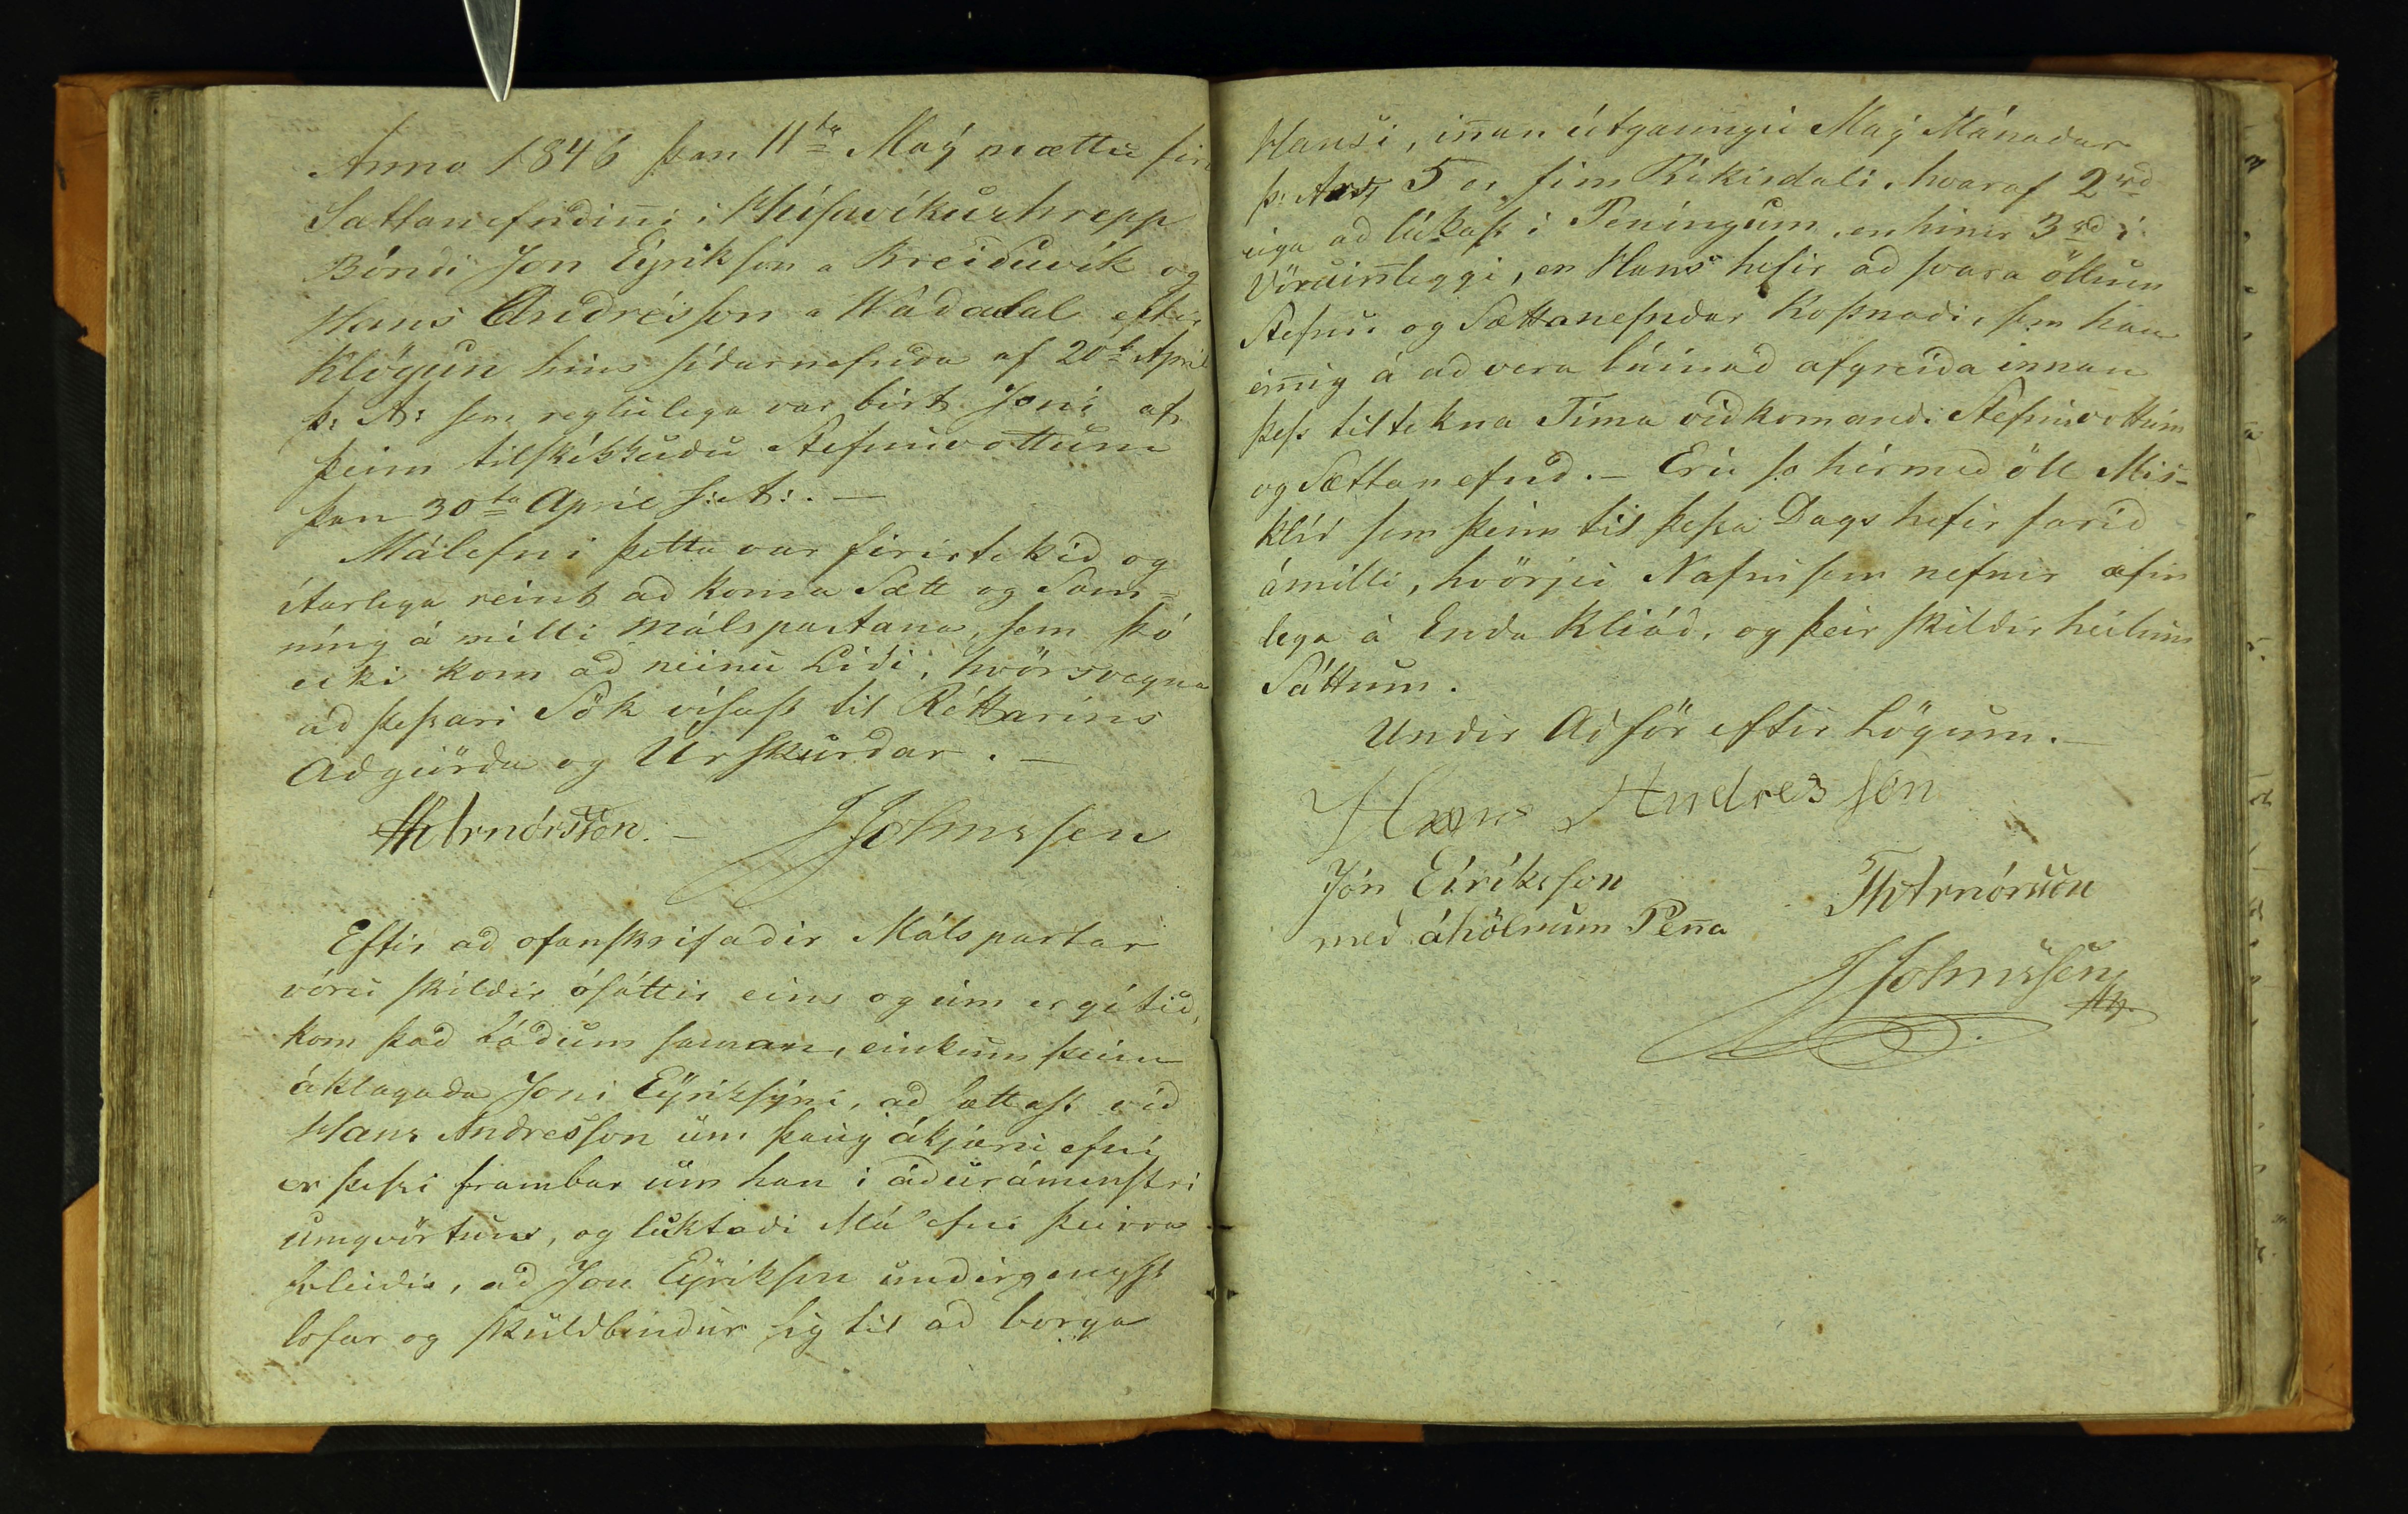 Anno 1846 þan 11ta Maÿ mættu firi
Sattanefndiñi i Húsavíkurhrepp
Bóndi Jon Eÿriksson a Breiduvík og
Hans Andrésson a Kádadal eftir
Klögun hins sídarnefnda af 20ta April
þ: A: sem reglulega var birt Joni af
þeim tilskikkudu Stefnuvottum
þan 30ta April s: A:. —
Málefni þetta var firirtekid og
ítarlega reint ad koma Sætt og Sam=
níng á milli Málspartana, sem þó
ecki kom ad neinu Lidi, hvörsvegna
ad þessari Sök vísast til Réttarins
Adgiörda og Urskurdar. —
Th Arnórsson. — JJohnssen
Eftir ad ofanskrifadir Málspartar
vóru skildir ósáttir eins og um er gétid,
kom þad bádum saman, einkum þeim
áklagada Joni Eÿrikssÿni, ad sættast vid
Hans Andresson um þaug ákjæru efni
er þessi frambar um han i ádurámenstri
umqvörtun, og luktadi Málefni þeirra
soleidis, ad Jon Eÿriksson undirgengst
lofar og skuldbindur sig til ad borga
Hansi, iñan útgaungu Maÿ Mánadar
þ: Ars, 5 er fim Rikisdali, hvaraf 2 rd
eiga ad lúkast i Peníngum, en hinir 3 rd i
Vöruiñleggi, en Hans hefir ad svara öllum
Stefnu og Sættanefndar Kostnadi, sem han
eiñig á ad vera búinad afgreida innan
þess tiltekna Tíma vidkomandi Stefnuvottum
og Sættanefnd. — Eru so hérmed öll Mis-
klíd sem þeim til þessa Dags hefir farid
ámilli, hvörju Nafni sem nefnir æfin
lega á Enda kliád, og þeir skildir heilum
Sáttum.
Undir Adför eftir Lögum. —
Hans Andresson
Jón Eiríksson
med áhöldnum Peña
Th Arnórsson
JJohnssen